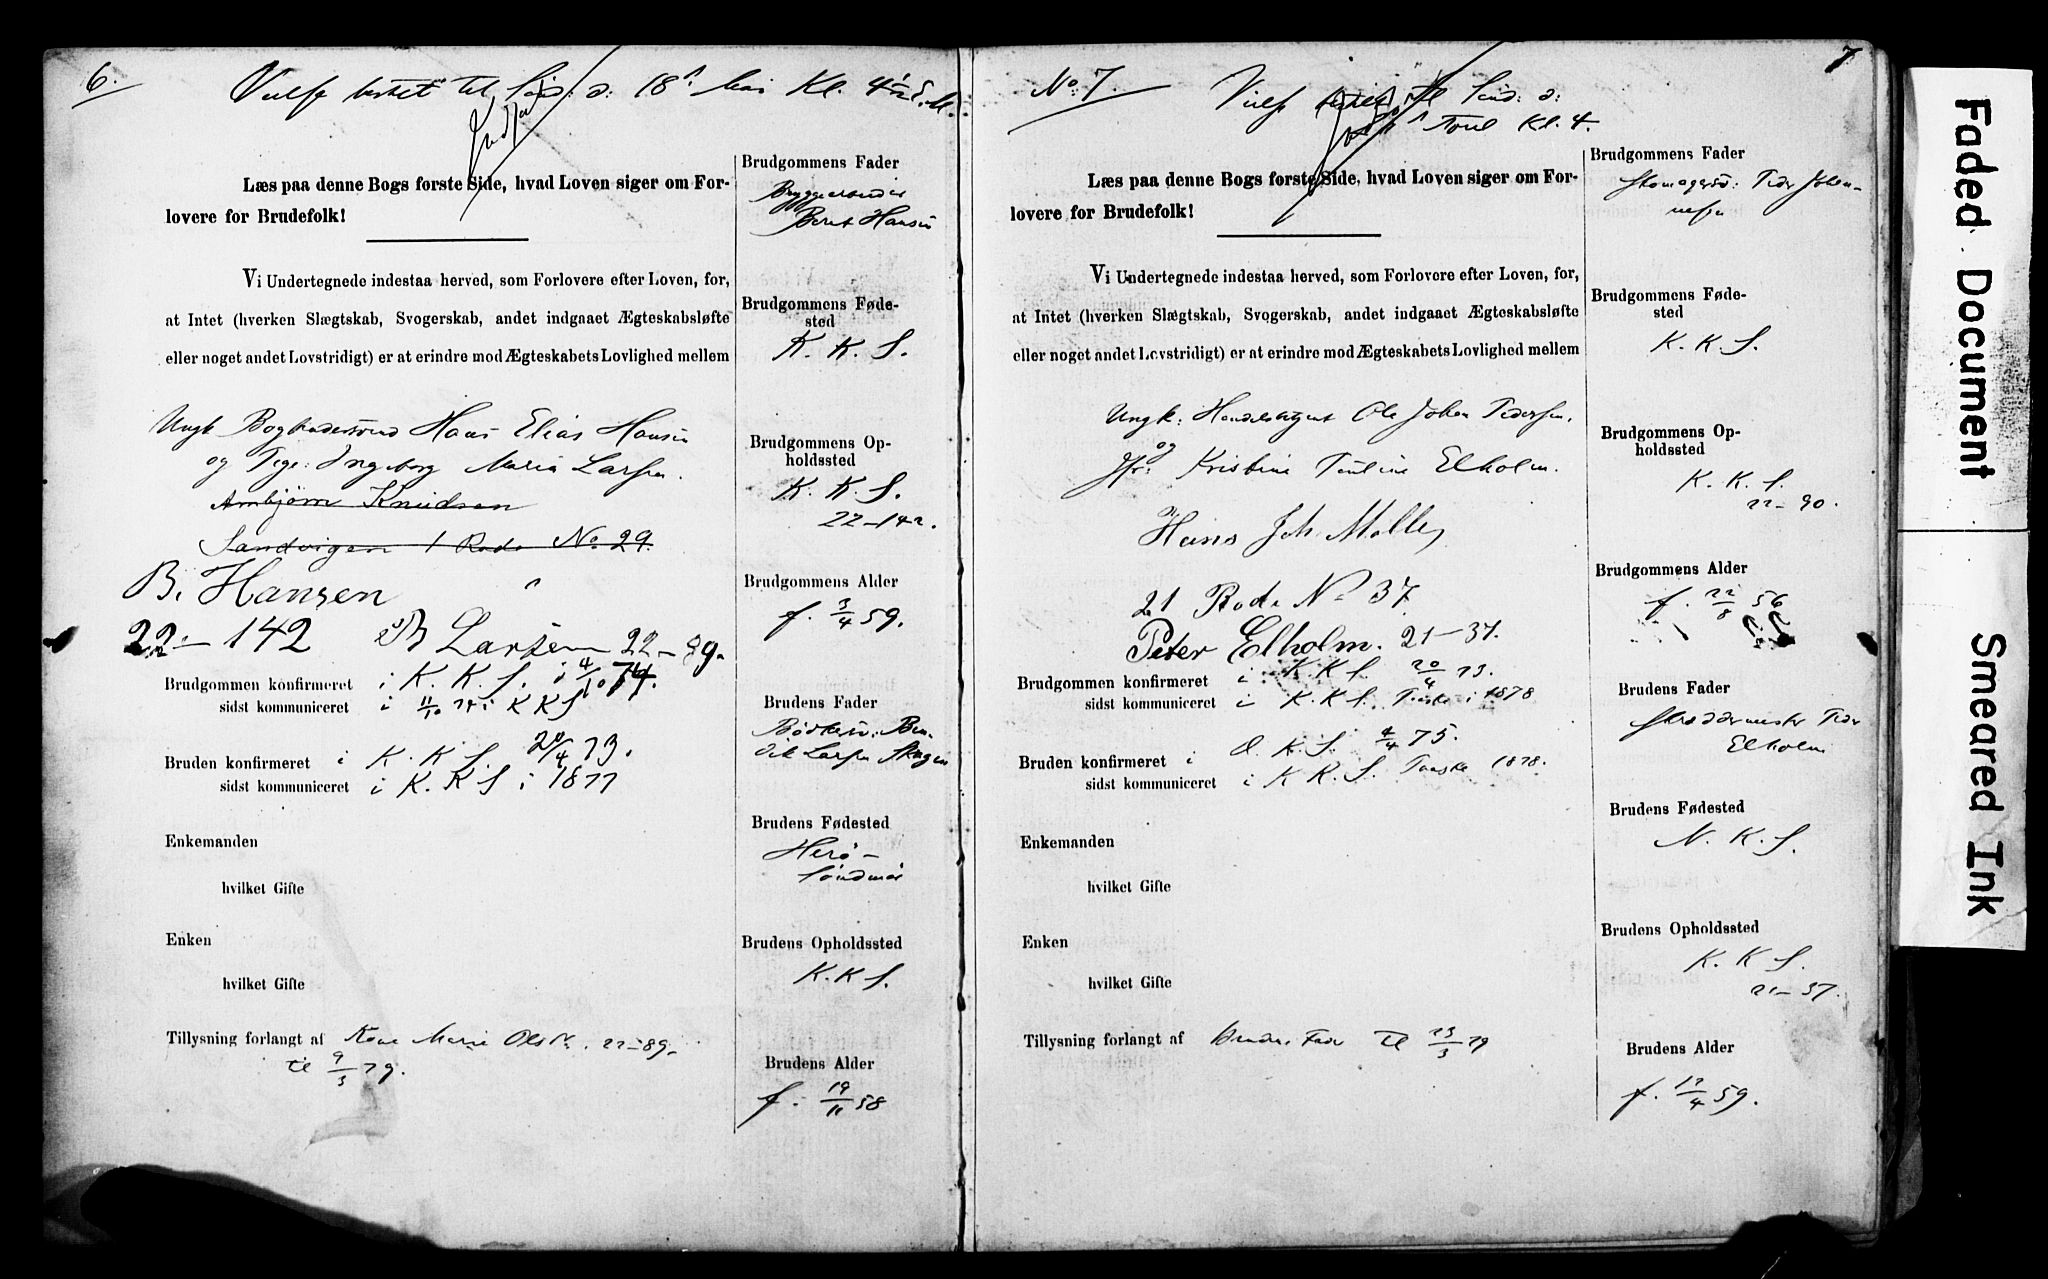 6.
Kl. 4½ E. M.
Læs paa denne Bogs første Side, hvad Loven siger om For-
lovere for Brudefolk!
Vi Undertegnede indestaa herved, som Forlovere efter Loven, for,
at Intet (hverken Slægtskab, Svogerskab, andet indgaaet Ægteskabsløfte
eller noget andet Lovstridigt) er at erindre mod Ægteskabets Lovlighed mellem
Ungk Hans Elias Hansen
og Pige: Ingeborg Maria Larsen.
Arnbjörn Knudsen
Sandvigen 1 Rode No 29.
B. Hansen
22 - 142 B Larsen 22 - 89.
Brudgommen konfirmeret i K. K. S. i 4/10 74.
sidst kommuniceret i 11/10 74 i K K S
Bruden konfirmeret i K. K. S. 20/4 73.
sidst kommuniceret i K. K S i 1877
Enkemanden
hvilket Gifte
Enken
hvilket Gifte
Tillysning forlangt af Marie 22-89.
til 9/3 79.
Brudgommens Fader
Bryggearbeider
Bernt Hansen
Brudgommens Føde-
sted
K. K. S.
Brudgommens Op-
holdssted
K. K. S.
22-142.
Brudgommens Alder
f. 3/4 59.
Brudens Fader
Larsen
Brudens Fødested
Herö-
Söndmör
Brudens Opholdssted
K. K S.
Brudens Alder
f. 19/11 58
7
No 7.
Kl. 4.
Læs paa denne Bogs første Side, hvad Loven siger om For-
lovere for Brudefolk!
Vi Undertegnede indestaa herved, som Forlovere efter Loven, for,
at Intet (hverken Slægtskab, Svogerskab, andet indgaaet Ægteskabsløfte
eller noget andet Lovstridigt) er at erindre mod Ægteskabets Lovlighed mellem
Ungk: Handelsagent Ole Johan Pedersen.
og
Jfr: Kristine Pauline Elholm.
Hans Joh. Moller
21 Rode No 37
Peter Elholm. 21-37.
Brudgommen konfirmeret i K K S. 20/4 73.
sidst kommuniceret i K. K S. Paaske i 1878
Bruden konfirmeret i D. K. S. 4/4 75.
sidst kommuniceret i K K. S. Paaske 1878.
Enkemanden
hvilket Gifte
Enken
hvilket Gifte
Tillysning forlangt af Brudens Fader til 23/3 79
Brudgommens Fader
Skomagersv: Peder Johan-
nesen
Brudgommens Føde-
sted
K. K. S.
Brudgommens Op-
holdssted
K. K. S.
22-90.
Brudgommens Alder
f. 22/8 56
Brudens Fader
Skræddermester Peder
Elholm
Brudens Fødested
N. K. S.
Brudens Opholdssted
K. K S.
21-37.
Brudens Alder
f. 12/4 59.
Faded Document
Smeared Ink